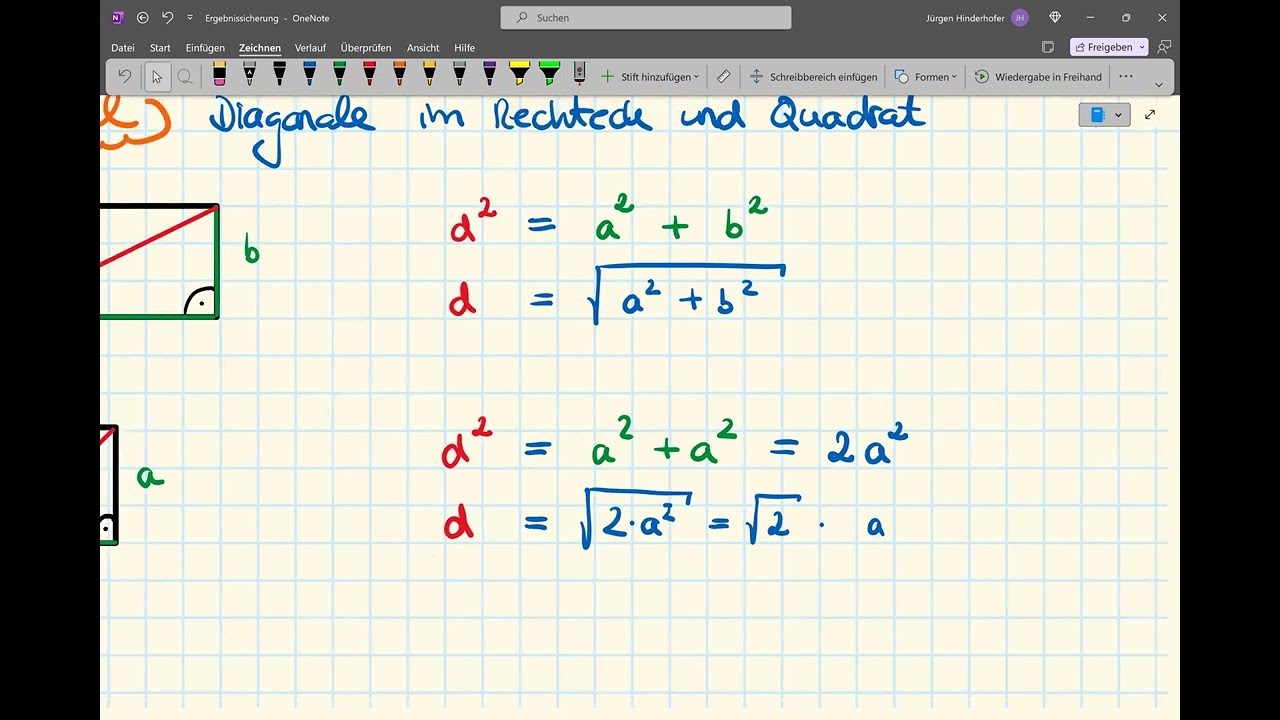 Ergebnissicherung - OneNote
Suchen
Jürgen Hinderhofer JH
Datei Start Einfügen Zeichnen Verlauf Überprüfen Ansicht Hilfe
Freigeben
Stift hinzufügen Schreibbereich einfügen Formen Wiedergabe in Freihand
Diagonale im Rechteck und Quadrat
d² = a² + b²
b
d = √(a² + b²)
d² = a² + a² = 2a²
a
d = √(2·a²) = √2 · a